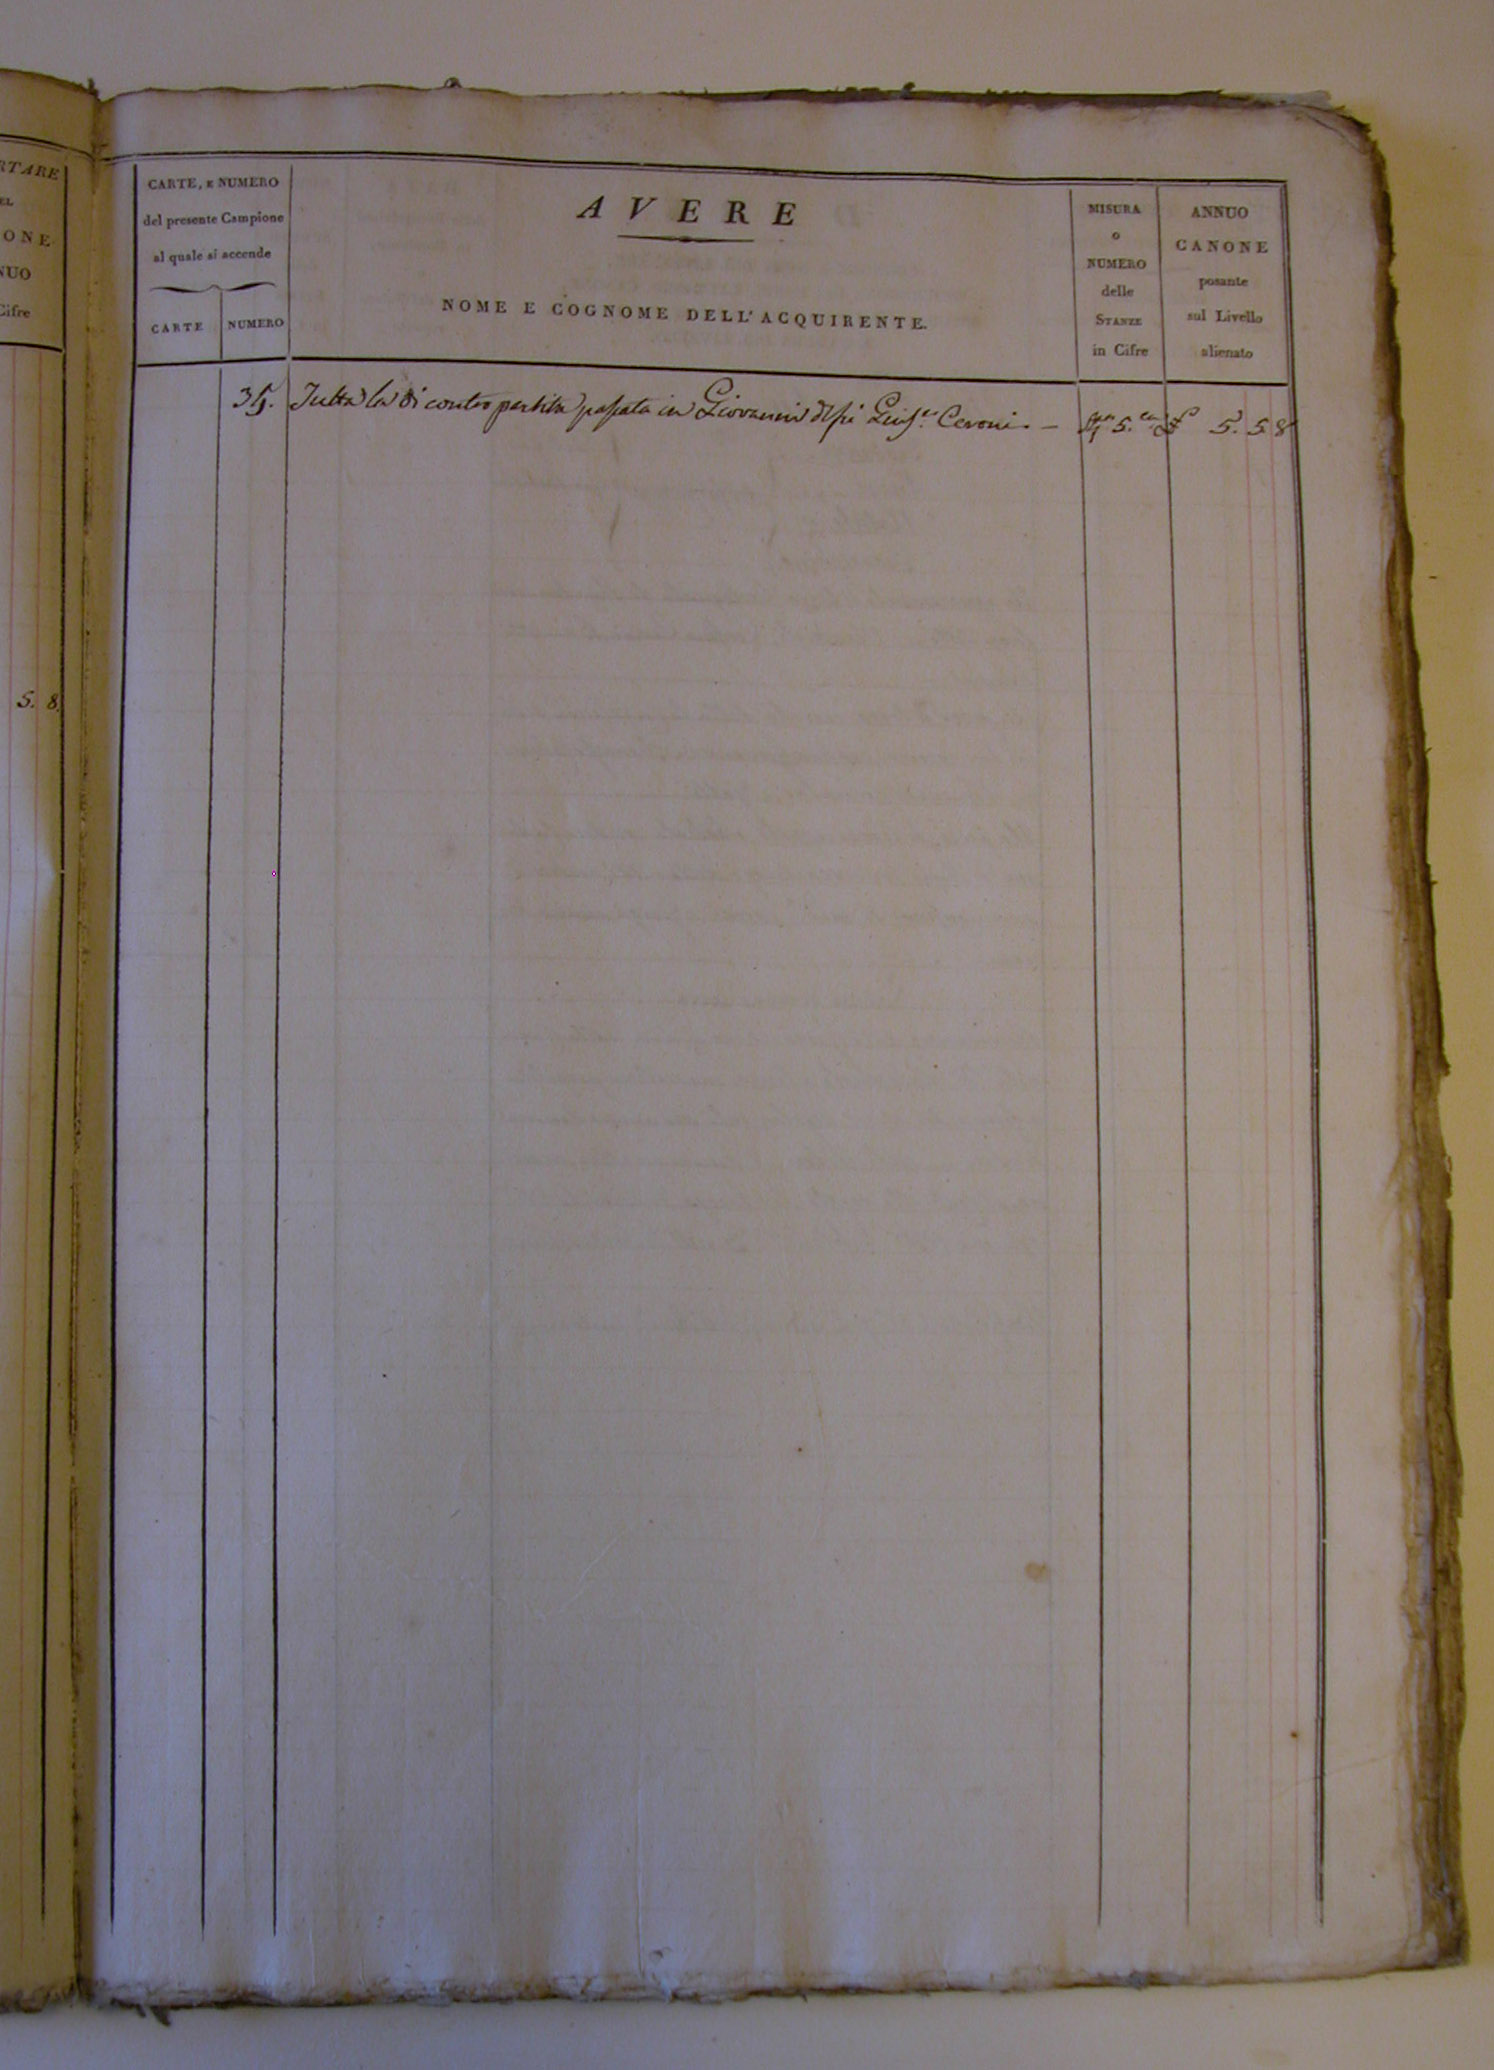 RTARE
EL
ONE
NUO
Cifre
5. 8.
CARTE, E NUMERO
del presente Campione
al quale si accende
CARTE
NUMERO
AVERE
NOME E COGNOME DELL'ACQUIRENTE.
MISURA
o
NUMERO
delle
STANZE
in Cifre
ANNUO
CANONE
posante
sul Livello
alienato
Tutta la di contro partita passata in Giovanni Ceroni. — 5. 5. 5 8